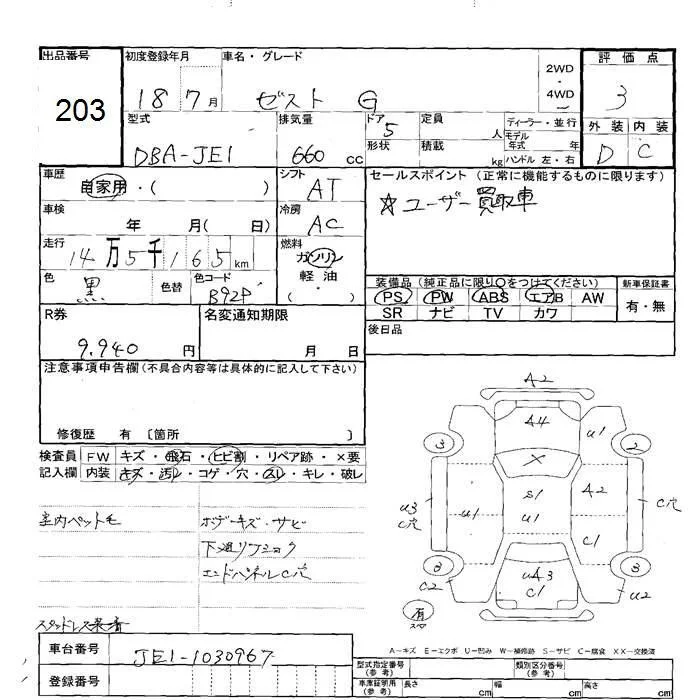 出品番号
203
初度登録年月
18 7月
車名・グレード
ゼスト G
2WD
・
4WD
評価点
3
外装 内装
D C
型式
DBA-JE1
排気量
660 cc
ドア 5
形状
定員
人
積載
kg
ディーラー・並行
モデル
年式 年
ハンドル 左・右
車歴
自家用・( )
シフト
AT
セールスポイント(正常に機能するものに限ります)
☆ユーザー買取車
車検
年 月( 日)
冷房
AC
走行
14万5千165km
燃料
ガソリン
軽油
( ・ )
色
黒
色替
色コード
B92P
装備品(純正品に限り○をつけてください)
新車保証書
PS PW ABS エアB AW
SR ナビ TV カワ
有・無
R券
9.940 円
名変通知期限
月 日
後日品
注意事項申告欄(不具合内容等は具体的に記入して下さい)
修復歴 有 〔箇所 〕
検査員 FW キズ・飛石・ヒビ割・リペア跡・×要
記入欄 内装 キズ・汚レ・コゲ・穴・スレ・キレ・破レ
室内ペット毛
ボデーキズ・サビ
下廻リ
エンドパネルC穴
スタッドレス装着
A2
A4
U1
3
2
X
S1
A2
U3
C穴
U1
U1
C穴
C1
3
3
UA3
C1
C2
U2
有
スペア
A-キズ E-エクボ U-凹み W-補修跡 S-サビ C-腐食 XX-交換済
車台番号
JE1-1030967
登録番号
型式指定番号
(参考)
類別区分番号
(参考)
車庫証明用
(参考)
長さ cm
幅 cm
高さ cm